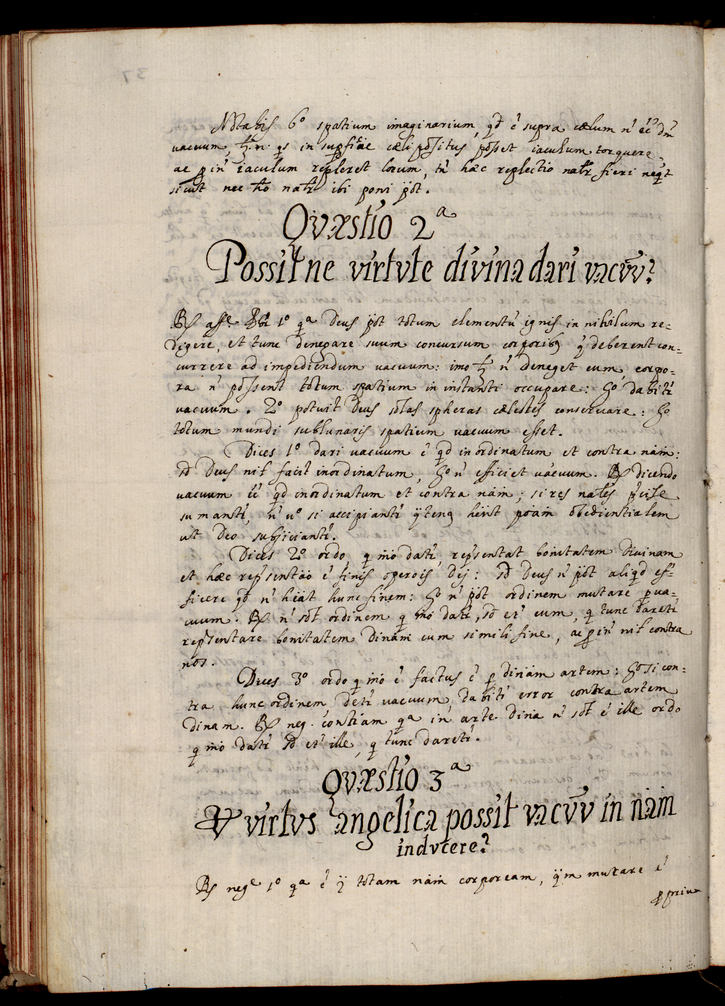 Notabis 6º spatium imaginarium, qd ẽ supra cælum ñ ẽẽ dm̃
vacuum, ñ qs in supficiæ cæli positus posset iaculum torquere,
ac p iñ iaculum repleret locum, tñ hæc repletio natr fieri neqt
sicut nec natr ibi poni pot.
Qvæstio 2ª
Possitne virtvte divina dari vacv̄v?
Rs affe 1º qª Deus pot totum elementũ ignis in nihilum re-
digere, et tunc denegare suum concursum corporibq q deberent con-
currere ad impediendum vacuum: imo ñ deneget eum, corpo-
ra ñ possent totum spatium in instanti occupare: Go dabitr
vacuum. 2º potuit Deus solas spheras cælestes conservare: Go
totum mundi sublunaris spatium vacuum esset.
Dices 1º dari vacuum ẽ qd inordinatum et contra nãm:
sd Deus nil facit inordinatum, Go ñ efficiet vacuum. Rs dicendo
vacuum ẽẽ qd inordinatum et contra nãm, si res nales
sumantr, ñ vº si accipiantr qtenq hẽnt poãm obedientialem
ut Deo subjiciantr.
Dices 2º ordo q mõ datr repsentat bonitatem Divinam
et hæc repsentaõ ẽ finis operois Dej: sd Deus ñ pot aliqd ef-
ficere qd ñ hẽat hunc finem: Go ñ pot ordinem mutare p va-
cuum. Rs ñ sol ordinem q mõ datr, sd et eum, q tunc daretr
repsentare bonitatem Dinam cum simili fine, ac p iñ nil contra
nos.
Dices 3º ordo q mõ ẽ factus ẽ p dinam artem: Go si con-
tra hunc ordinem detr vacuum, dabitr error contra artem
dinam. Rs neg. contiam qª in arte dina ñ sol ẽ ille ordo
q mõ datr sd et ille, q tunc daretr.
Qvæstio 3ª
virtvs angelica possit vacv̄v in nãm
indvcere?
Rs nege 1º qª ẽ totam nãm corpoream, qm mutare ẽ